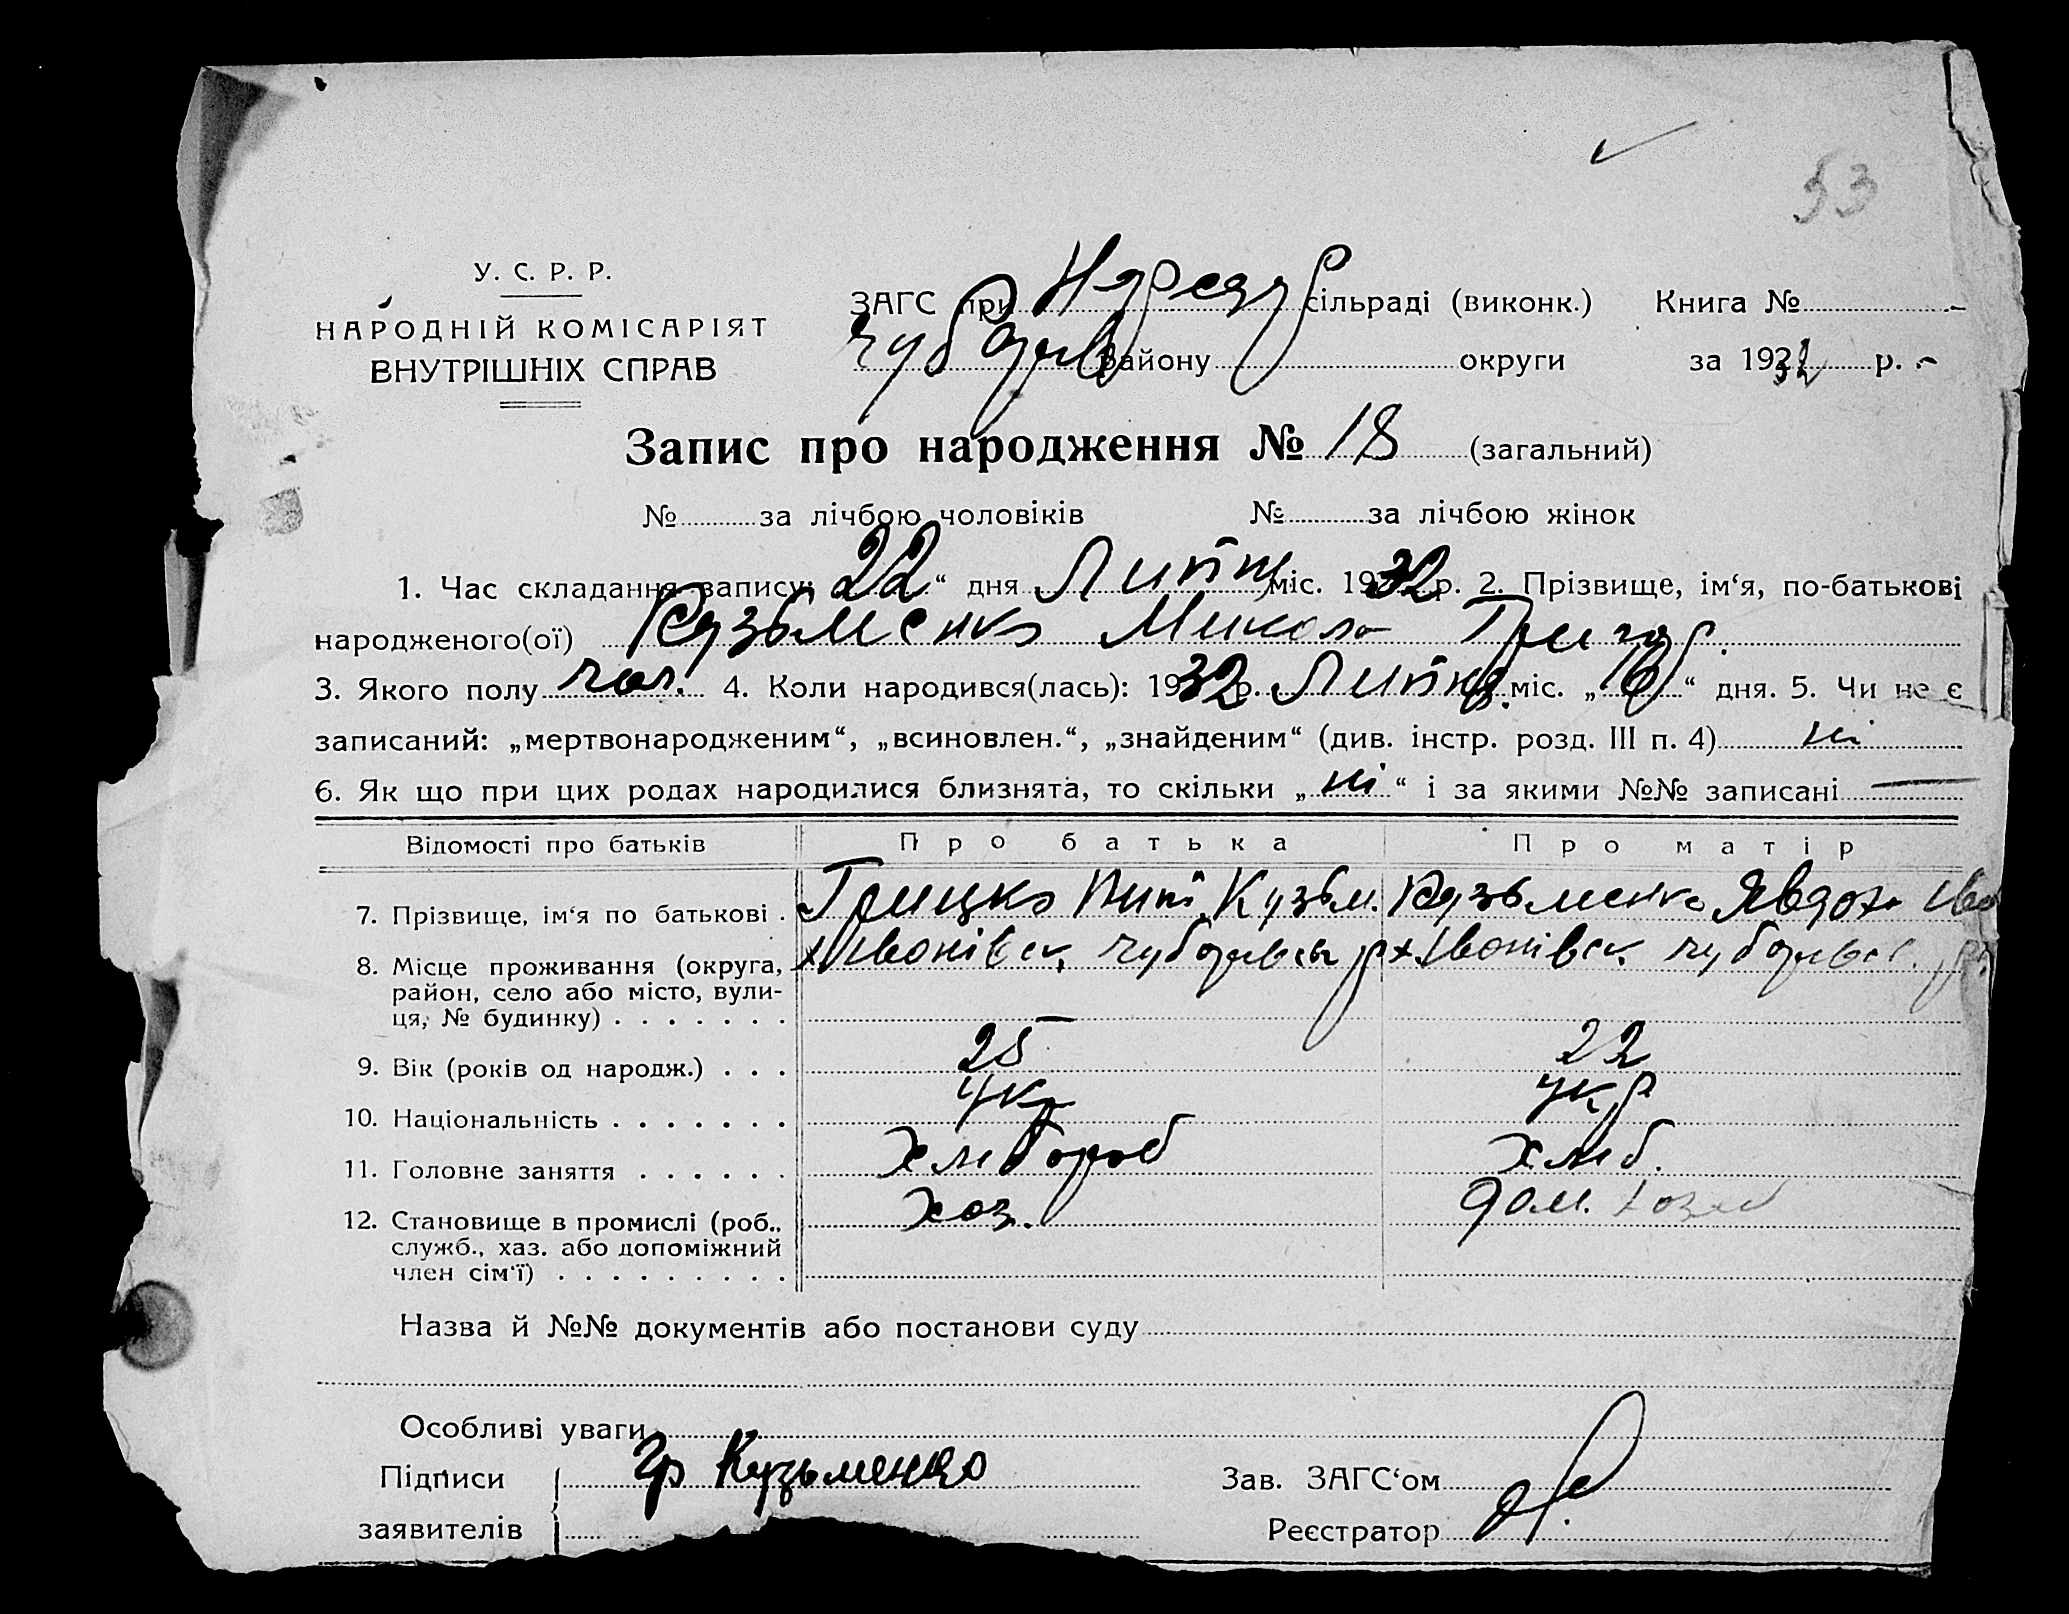 53
У. С. Р. Р.
НАРОДНІЙ КОМІСАРІЯТ
ВНУТРІШНІХ СПРАВ
ЗАГС при сільраді (виконк.) Книга №
району округи за 1932 р.
Запис про народження № 18 (загальний)
№ за лічбою чоловіків № за лічбою жінок
1. Час складання запису: 22 “ дня міс. 1932 р. 2. Прізвище, ім‘я, по-батькові
народженого(ої) Кузьменко Микола Григор.
3. Якого полу чол. 4. Коли народився(лась): 1932 р. Липня міс. „ “ дня. 5. Чи не є
записаний: „мертвонародженим“, „всиновлен.“, „знайденим“ (див. інстр. розд. III п. 4) ні
6. Як що при цих родах народилися близнята, то скільки „ ні “ і за якими №№ записані —
Відомості про батьків Про батька Про матір
7. Прізвище, ім‘я по батькові . Грицко Кузьм. Кузьменко Явдоха Ива
8. Місце проживання (округа,
район, село або місто, вули-
ця, № будинку) . . . . . . .
9. Вік (років од народж.) . . . 25 22
10. Національність . . . . . . . Укр Укр
11. Головне заняття . . . . . . Хлибороб Хлиб.
12. Становище в промислі (роб., Хоз. дом.
служб., хаз. або допоміжний
член сім‘ї) . . . . . . . . .
Назва й №№ документів або постанови суду
Особливі уваги
Підписи Гр Кузьменко Зав. ЗАГС‘ом
заявителів Реєстратор